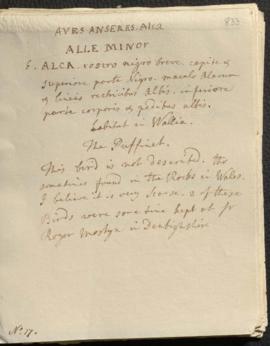 833
AVES ANSERES. ALCA
ALLE MINOR
5. ALCA rostro nigro breve. capite &
superiore parte nigro. macula alarum
& lineis rectricibus albis. inferiore
parte corporis & pedibus albis.
habitat in Wallia.
The Puffinet.
This bird is not described. tho
sometimes found in the Rocks in Wales.
I believe it is very scarse. 2 of these
Birds were some time kept at Sr
Roger Mostyn in Denbighshire
No. 17.